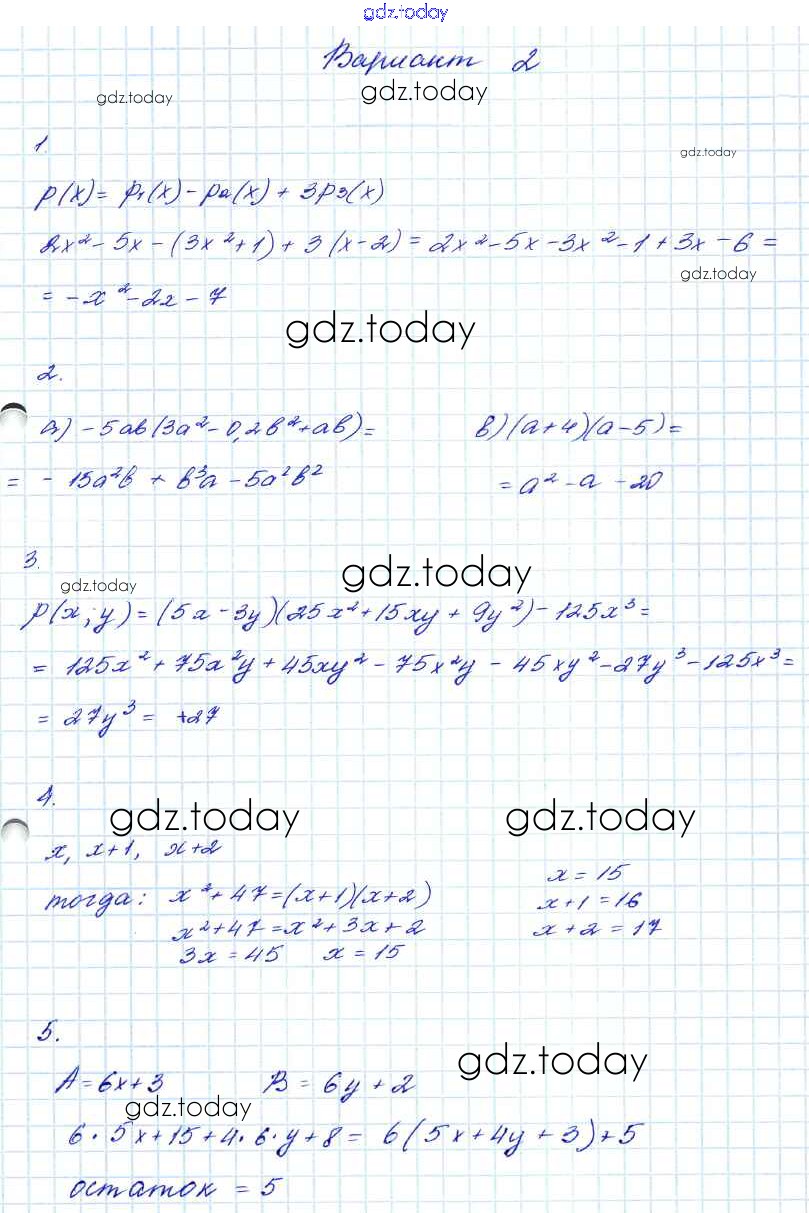 gdz.today
Вариант 2
gdz.today
gdz.today
1.
gdz.today
p(x) = p₁(x) - p₂(x) + 3p₃(x)
2x² - 5x - (3x² + 1) + 3(x - 2) = 2x² - 5x - 3x² - 1 + 3x - 6 =
gdz.today
= - x² - 2x - 7
gdz.today
2.
а) - 5ab(3a² - 0,2b² + ab) =
= - 15a²b + b³a - 5a²b²
в) (a + 4)(a - 5) =
= a² - a - 20
3.
gdz.today
gdz.today
p(x; y) = (5x - 3y)(25x² + 15xy + 9y²) - 125x³ =
= 125x² + 75x²y + 45xy² - 75x²y - 45xy² - 27y³ - 125x³ =
= 27y³ = +27
4.
gdz.today
gdz.today
x, x+1, x+2
тогда: x² + 47 = (x+1)(x+2)
x² + 47 = x² + 3x + 2
3x = 45 x = 15
x = 15
x + 1 = 16
x + 2 = 17
5.
gdz.today
A = 6x + 3 B = 6y + 2
gdz.today
6 · 5x + 15 + 4 · 6 · y + 8 = 6(5x + 4y + 3) + 5
остаток = 5